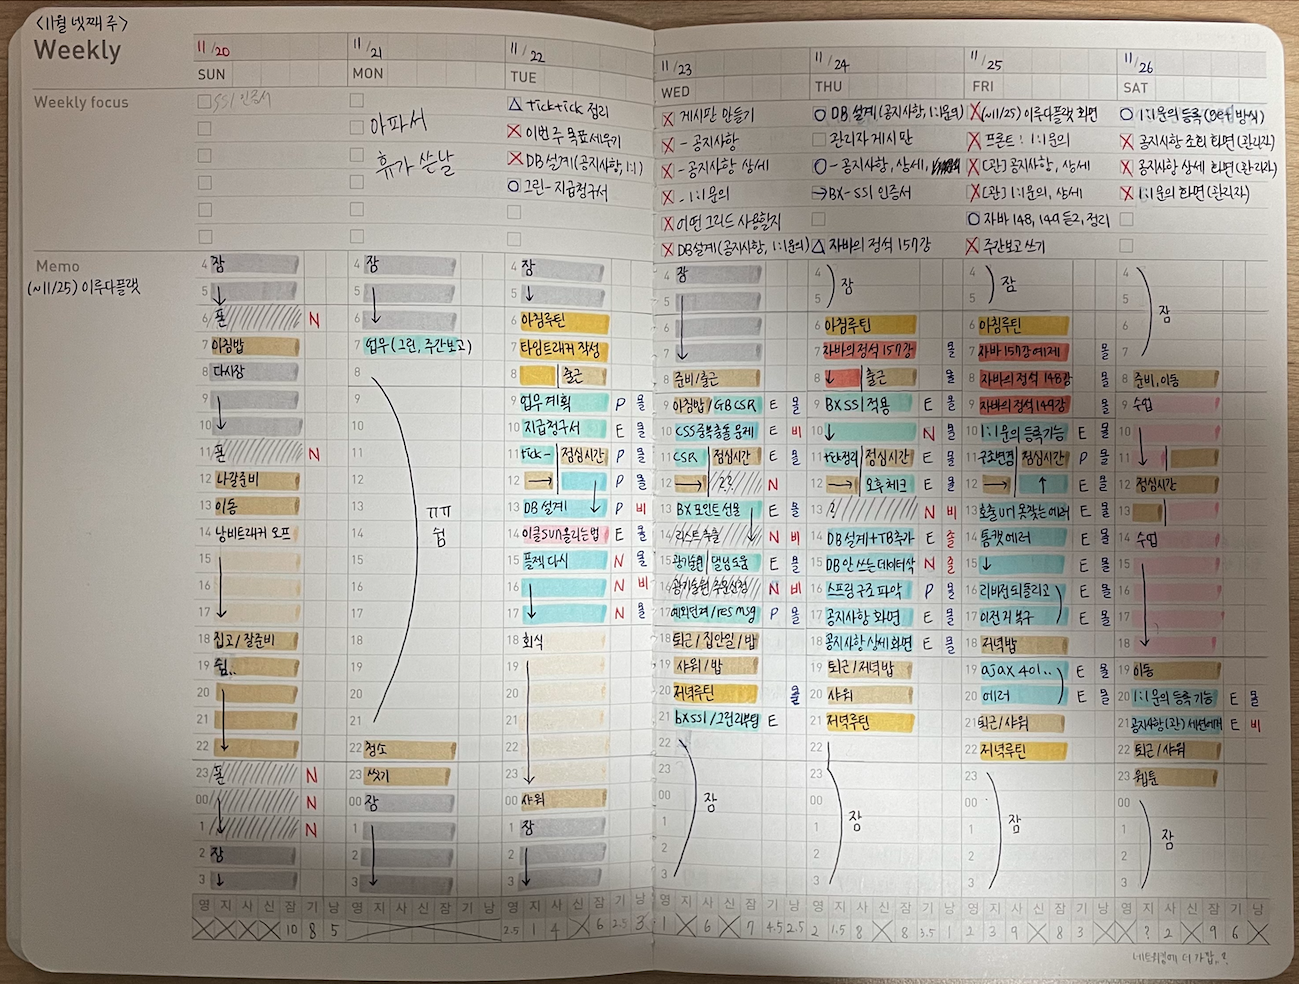 <11월 넷째 주>
Weekly
11/20
SUN
11/21
MON
11/22
TUE
11/23
WED
11/24
THU
11/25
FRI
11/26
SAT
Weekly focus
SSI 인증서
아파서
휴가 쓴 날
ticktick 정리
이번 주 목표 세우기
DB 설계(공지사항, 1:1)
그린 - 지급청구서
게시판 만들기
- 공지사항
- 공지사항 상세
- 1:1문의
어떤 그리드 사용할지
DB설계(공지사항, 1:1문의)
DB 설계(공지사항, 1:1문의)
관리자 게시판
- 공지사항, 상세,
→ BX-SSI 인증서
자바의 정석 157강
(~11/25) 이루다플랫 화면
프론트: 1:1문의
[관] 공지사항, 상세
[관] 1:1문의, 상세
자바 148, 149 듣고, 정리
주간보고 쓰기
1:1문의 등록(get 방식)
공지사항 조회 화면(관리자)
공지사항 상세 화면(관리자)
1:1문의 화면(관리자)
Memo
(~11/25) 이루다플랫
4 잠
5
6 폰 N
7 아침밥
8 다시잠
9
10
11 폰 N
12 나갈준비
13 이동
14 낭비트래커 오프
15
16
17
18 집고/잘준비
19 쉼..
20
21
22
23 폰 N
00 N
1 N
2 잠
3
4 잠
5
6
7 업무(그린, 주간보고)
8
9
10
11
12
13 ㅠㅠ
14 쉼
15
16
17
18
19
20
21
22 청소
23 씻기
00 잠
1
2
3
4 잠
5
6 아침루틴
7 타임트래커 작성
8 출근
9 업무 계획 P 몰
10 지급청구서 E 몰
11 tick- 점심시간 P 몰
12 → P 몰
13 DB 설계 P 비
14 이클 SUN 올리는 법 E 몰
15 플젝 다시 N 몰
16 N 비
17 N 몰
18 회식
19
20
21
22
23
00 샤워
1 잠
2
3
4 잠
5
6
7
8 준비/출근
9 아침밥/GB CSR E 몰
10 CSS 중복충돌 문제 E 비
11 CSR 점심시간 E 몰
12 → ?? N
13 BX 포인트 선물 E 몰
14 리스트 추출 N 비
15 광기술원 멀님 도움 E 몰
16 광기술원 N 비
17 예외던져/res msg P 몰
18 퇴근/집안일/밥
19 샤워/밥
20 저녁루틴 몰
21 bx ssl/그린 E
22
23
00 잠
1
2
3
4
5 잠
6 아침루틴
7 자바의 정석 157강 몰
8 출근 몰
9 BX SSI 적용 E 몰
10 N 몰
11 tick정리 점심시간 E 몰
12 → 오후 체크 E 몰
13 ? N 비
14 DB 설계 + TB추가 E 졸
15 DB 안 쓰는 데이터삭 N 졸
16 스프링 구조 파악 P 몰
17 공지사항 화면 E 몰
18 공지사항 상세 화면 E 몰
19 퇴근/저녁밥
20 샤워
21 저녁루틴
22
23
00
1 잠
2
3
4
5 잠
6 아침루틴
7 자바 157강 예제 몰
8 자바의 정석 148강 몰
9 자바의 정석 149강 몰
10 1:1문의 등록기능 E 몰
11 구조변경 점심시간 P 몰
12 → ↑ E 몰
13 호출 url 못찾는 에러 E 몰
14 톰캣 에러 E 몰
15 E 몰
16 리버전 되돌리고 E 몰
17 이전 커 복구 E 몰
18 저녁밥
19 ajax 401.. E 몰
20 에러 E 몰
21 퇴근/샤워
22 저녁루틴
23
00
1 잠
2
3
4
5
6 잠
7
8 준비, 이동
9 수업
10
11
12 점심시간
13
14 수업
15
16
17
18
19 이동
20 1:1문의 등록 기능 E 몰
21 공지사항(관) 세션에러 E 비
22 퇴근/샤워
23 웹툰
00
1 잠
2
3
영 지 사 신 잠 기 낭
10 8 5
영 지 사 신 잠 기 낭
영 지 사 신 잠 기 낭
2.5 1 4 6 2.5 3
영 지 사 신 잠 기 낭
1 6 7 4.5 2.5
영 지 사 신 잠 기 낭
2 1.5 8 8 3.5 1
영 지 사 신 잠 기 낭
2 3 9 8 3
영 지 사 신 잠 기 낭
? 2 9 6